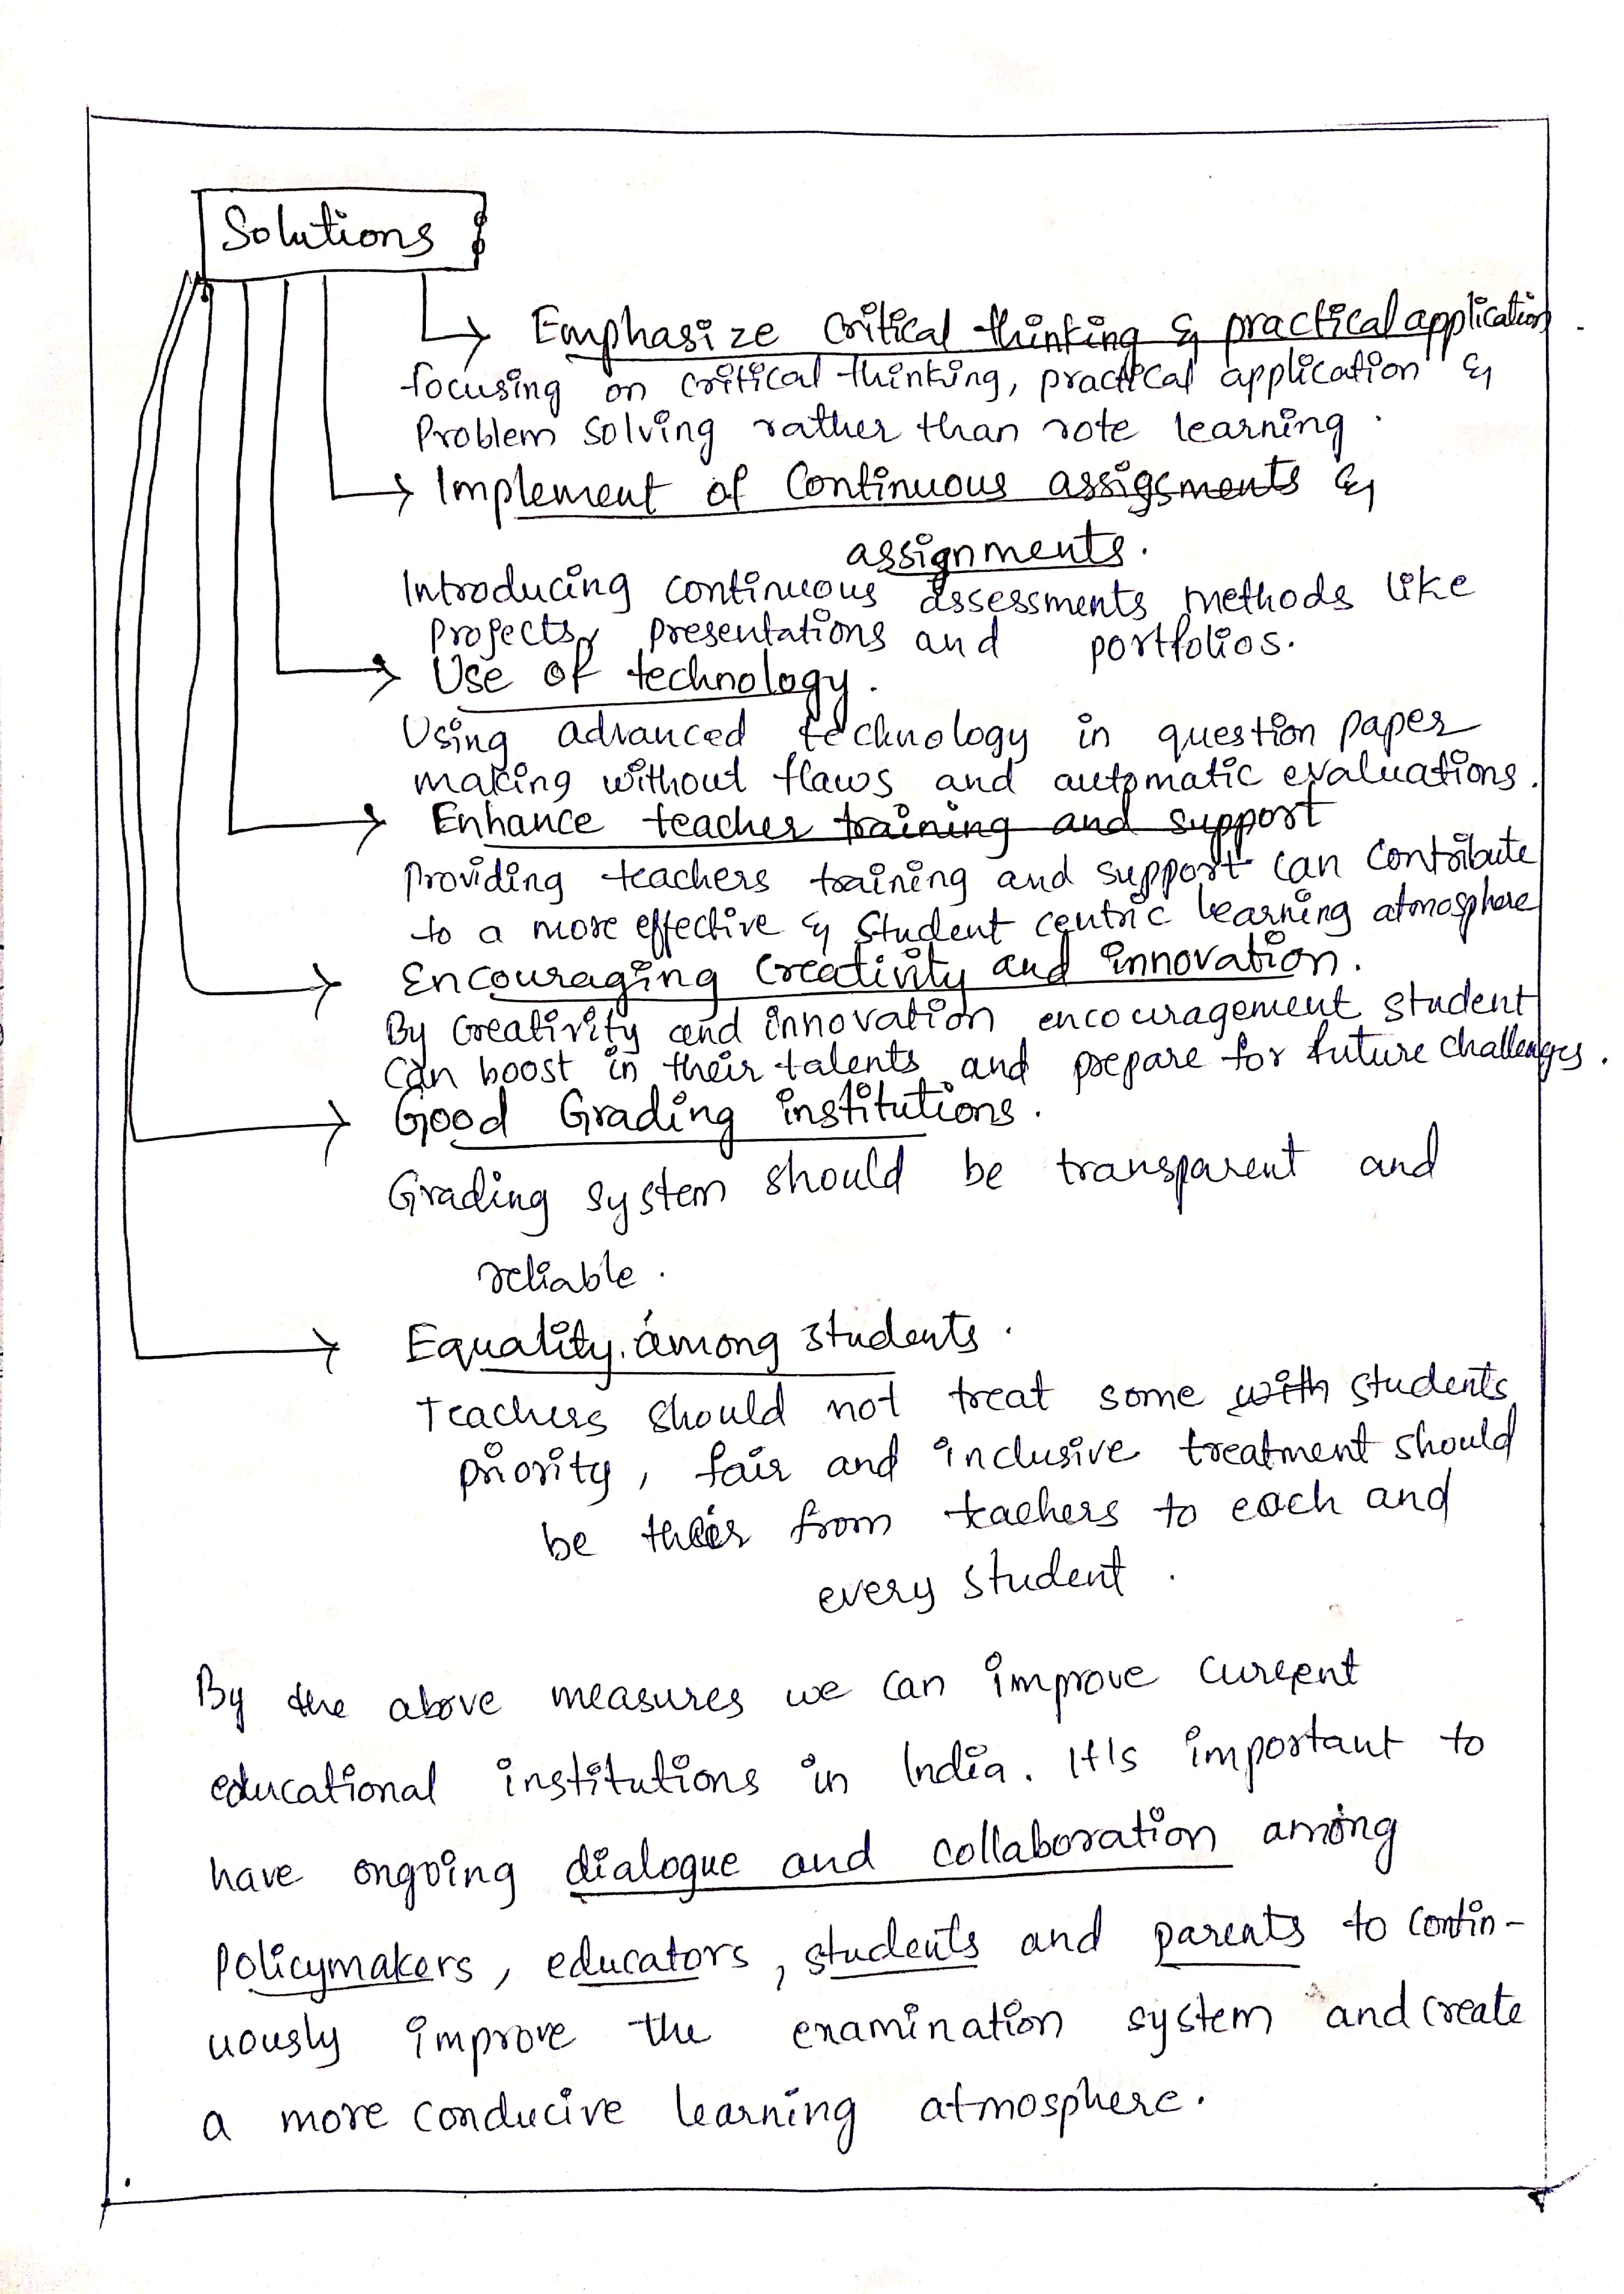 Solutions
Emphasize critical thinking & practical application.
focusing on critical thinking, practical application &
Problem solving rather than rote learning.
Implement of Continuous assigsments &
assignments.
Introducing continuous assessments methods like
Projects, presentations and portfolios.
Use of technology.
Using advanced technology in question paper
making without flaws and automatic evaluations.
Enhance teacher training and support
Providing teachers training and support can contribute
to a more effective & student centric learning atmosphere
Encouraging creativity and innovation.
By creativity and innovation encouragement student
can boost in their talents and prepare for future challenges.
Good Grading institutions.
Grading system should be transparent and
reliable.
Equality among students.
Teachers should not treat some with students
priority, fair and inclusive treatment should
be from teachers to each and
every student.
By the above measures we can improve current
educational institutions in India. It's important to
have ongoing dialogue and collaboration among
policymakers, educators, students and parents to contin-
uously improve the examination system and create
a more conducive learning atmosphere.